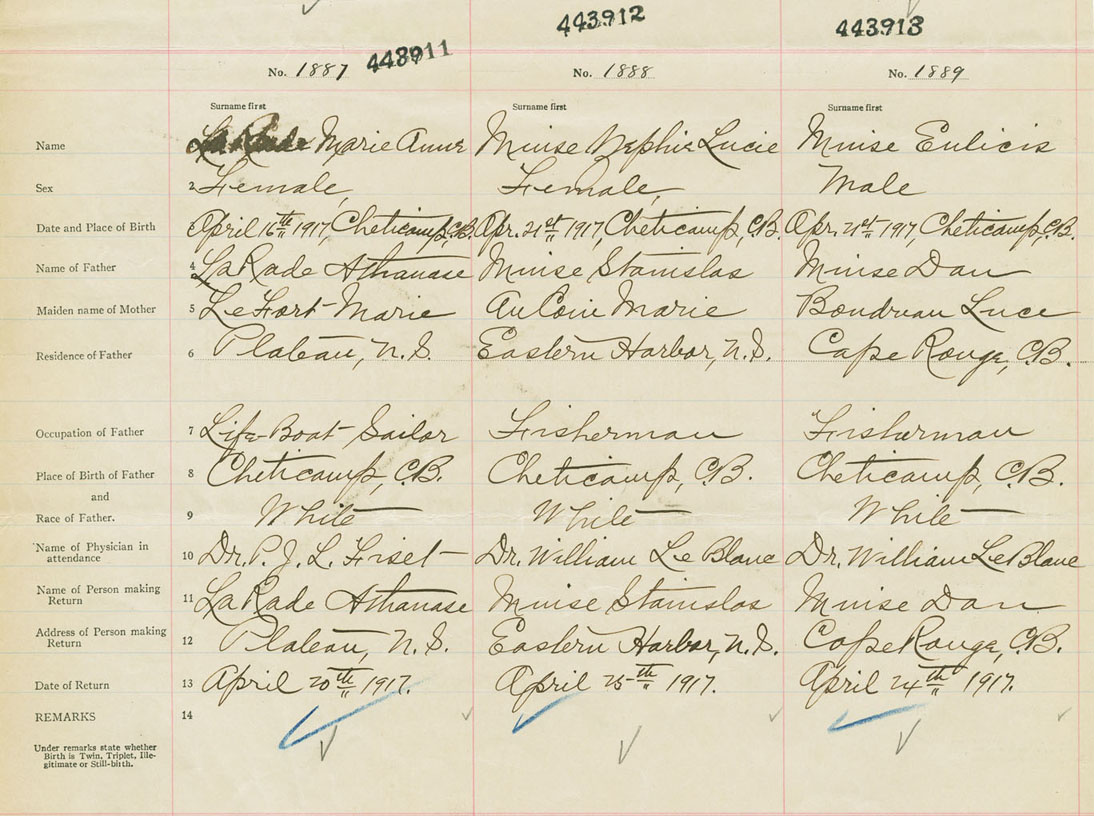 443911 443912 443913
No. 1887 No. 1888 No. 1889
Surname first Surname first Surname first
Name LaRade Marie Anne Muise Lucie Muise
Sex 2 Female, Female, Male
Date and Place of Birth 3 April 16th 1917, Cheticamp, C.B. Apr. 21st 1917, Cheticamp, C.B. Apr. 21st 1917, Cheticamp, C.B.
Name of Father 4 LaRade Athanase Muise Stanislas Muise Dan
Maiden name of Mother 5 LeFort Marie AuCoin Marie Boudreau Luce
Residence of Father 6 Plateau, N.S. Eastern Harbor, N.S. Cape Rouge, C.B.
Occupation of Father 7 Life-Boat Sailor Fisherman Fisherman
Place of Birth of Father 8 Cheticamp, C.B. Cheticamp, C.B. Cheticamp, C.B.
and
Race of Father. 9 White White White
Name of Physician in
attendance 10 Dr. P. J. L. Fiset Dr. William Le Blanc Dr. William LeBlanc
Name of Person making
Return 11 LaRade Athanase Muise Stanislas Muise Dan
Address of Person making
Return 12 Plateau, N.S. Eastern Harbor, N.S. Cape Rouge, C.B.
Date of Return 13 April 20th 1917. April 25th 1917. April 24th 1917.
REMARKS 14
Under remarks state whether
Birth is Twin, Triplet, Ille-
gitimate or Still-birth.